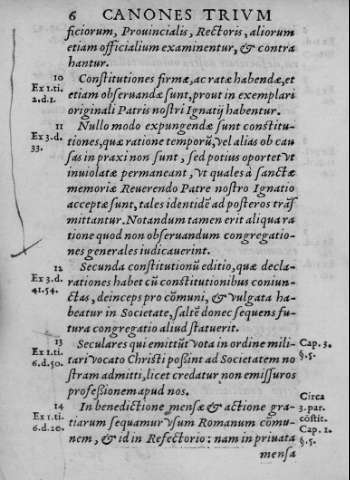 6 CANONES TRIVM
ficiorum, Prouincialis, Rectoris, aliorum
etiam officialium examinentur, & contra
hantur.
10 Constitutiones firmæ, ac ratæ habendæ, et
Ex 1.ti. etiam obseruandæ sunt, prout in exemplari
2.d.1. originali Patris nostri Ignatij habentur.
11 Nullo modo expungendæ sunt constitu-
Ex 3.d. tiones, quæ ratione temporũ, vel alias ob cau
33. sas in praxi non sunt, sed potius oportet vt
inuiolatæ permaneant, vt quales à sanctæ
memoriæ Reuerendo Patre nostro Ignatio
acceptæ sunt, tales identidẽ ad posteros trãs
mittantur. Notandum tamen erit aliqua ra
tione quod non obseruandum congregatio-
nes generales iudicauerint.
12 Secunda constitutionũ editio, quæ decla-
Ex 3.d. rationes habet cũ constitutionibus coniun-
41.54. ctas, deinceps pro cõmuni, & vulgata ha-
beatur in Societate, saltẽ donec sequens fu-
tura congregatio aliud statuerit.
13 Seculares qui emittũt vota in ordine mili- Cap. 3.
Ex 1.ti. tari vocato Christi possint ad Societatem no §.5.
6.d.50. stram admitti, licet credatur non emissuros
professionem apud nos.
14 In benedictione mensæ & actione gra- Circa
Ex 1.ti. tiarum sequamur vsum Romanum cõmu- 3.par. cõstit.
6.d.20. nem, & id in Refectorio: nam in priuata Cap. 1. §.5.
mensa